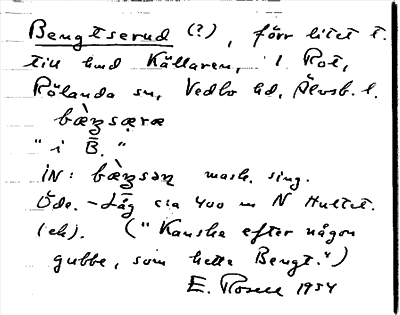 Bengtserud (?), förr litet t.
till hmd Källaren, i Rot,
Rölanda sn, Vedbo hd, Älvsb. l.
bæ̀ŋsæræ
"i B̄."
iN: bæ̀ŋsən mask. sing.
Öde. - Låg cia 400 m N Hultet.
(ek). ("Kanske efter någon
gubbe, som hette Bengt.")
E. Rosell 1954